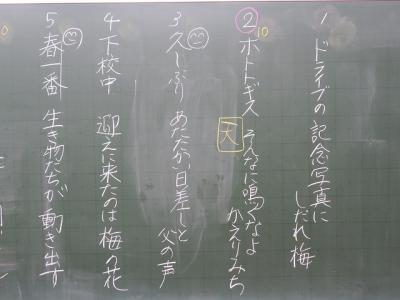 1 ドライブの 記念写真に
しだれ梅
② 10
ホトトギス そんなに鳴くなよ
かえりみち
天
3 久しぶり あたたか、日差しと
父の声
4 下校中 迎えに来たのは梅の花
5 春一番 生き物たちが動き出す